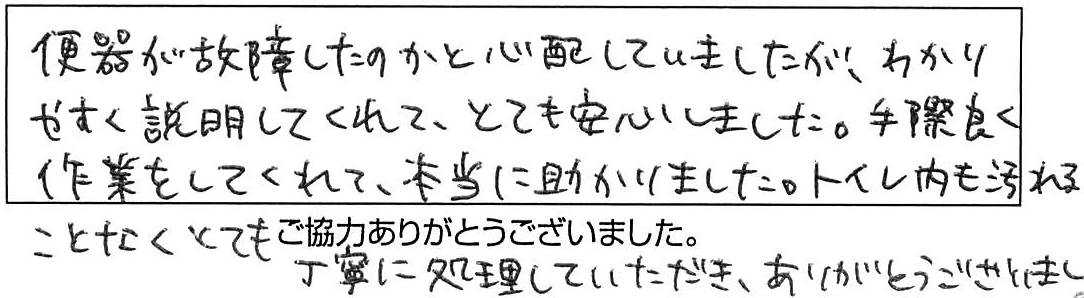 便器が故障したのかと心配していましたが、わかり
やすく説明してくれて、とても安心しました。手際良く
作業をしてくれて、本当に助かりました。トイレ内も汚れる
ことなくとても
ご協力ありがとうございました。
丁寧に処理していただき、ありがとうございまし